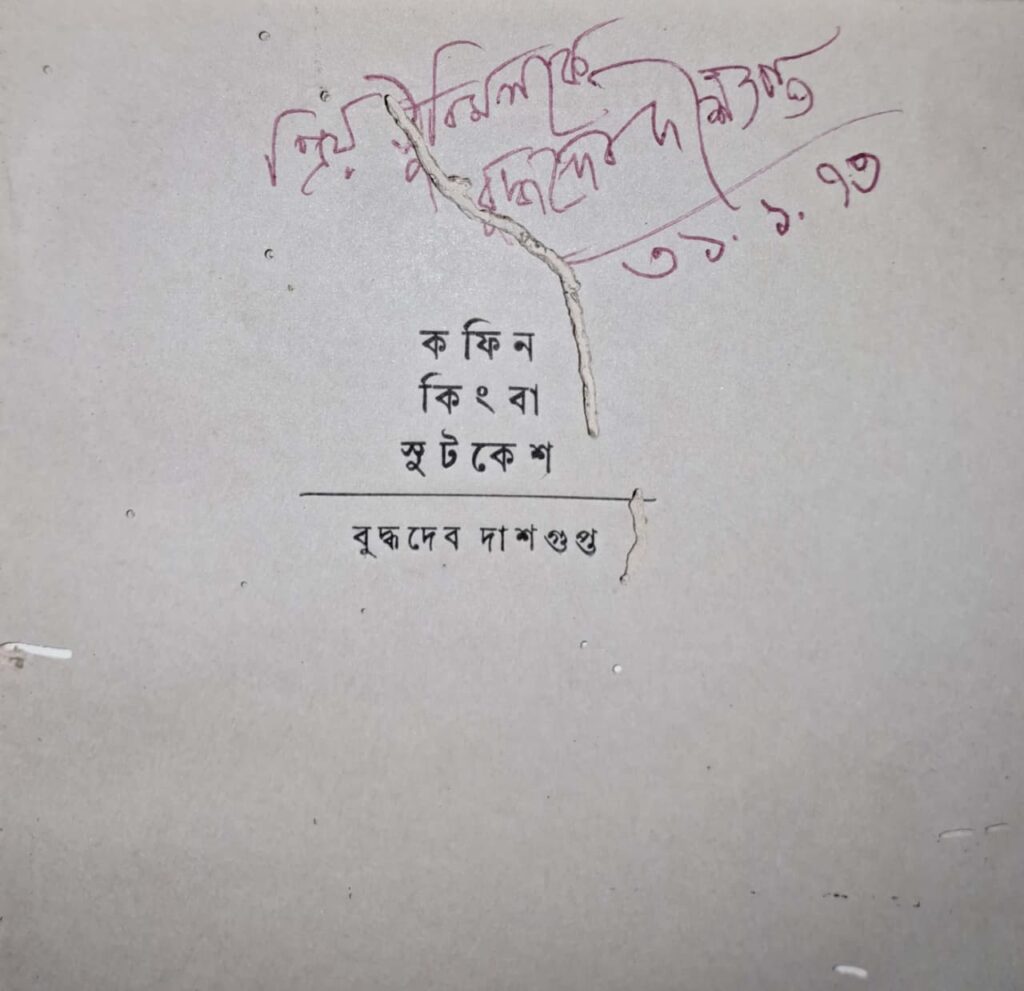 প্রিয় সুবিমলকে
বুদ্ধদেব দাশগুপ্ত
৩১.১.৭৩
কফিন
কিংবা
সুটকেশ
বুদ্ধদেব দাশগুপ্ত